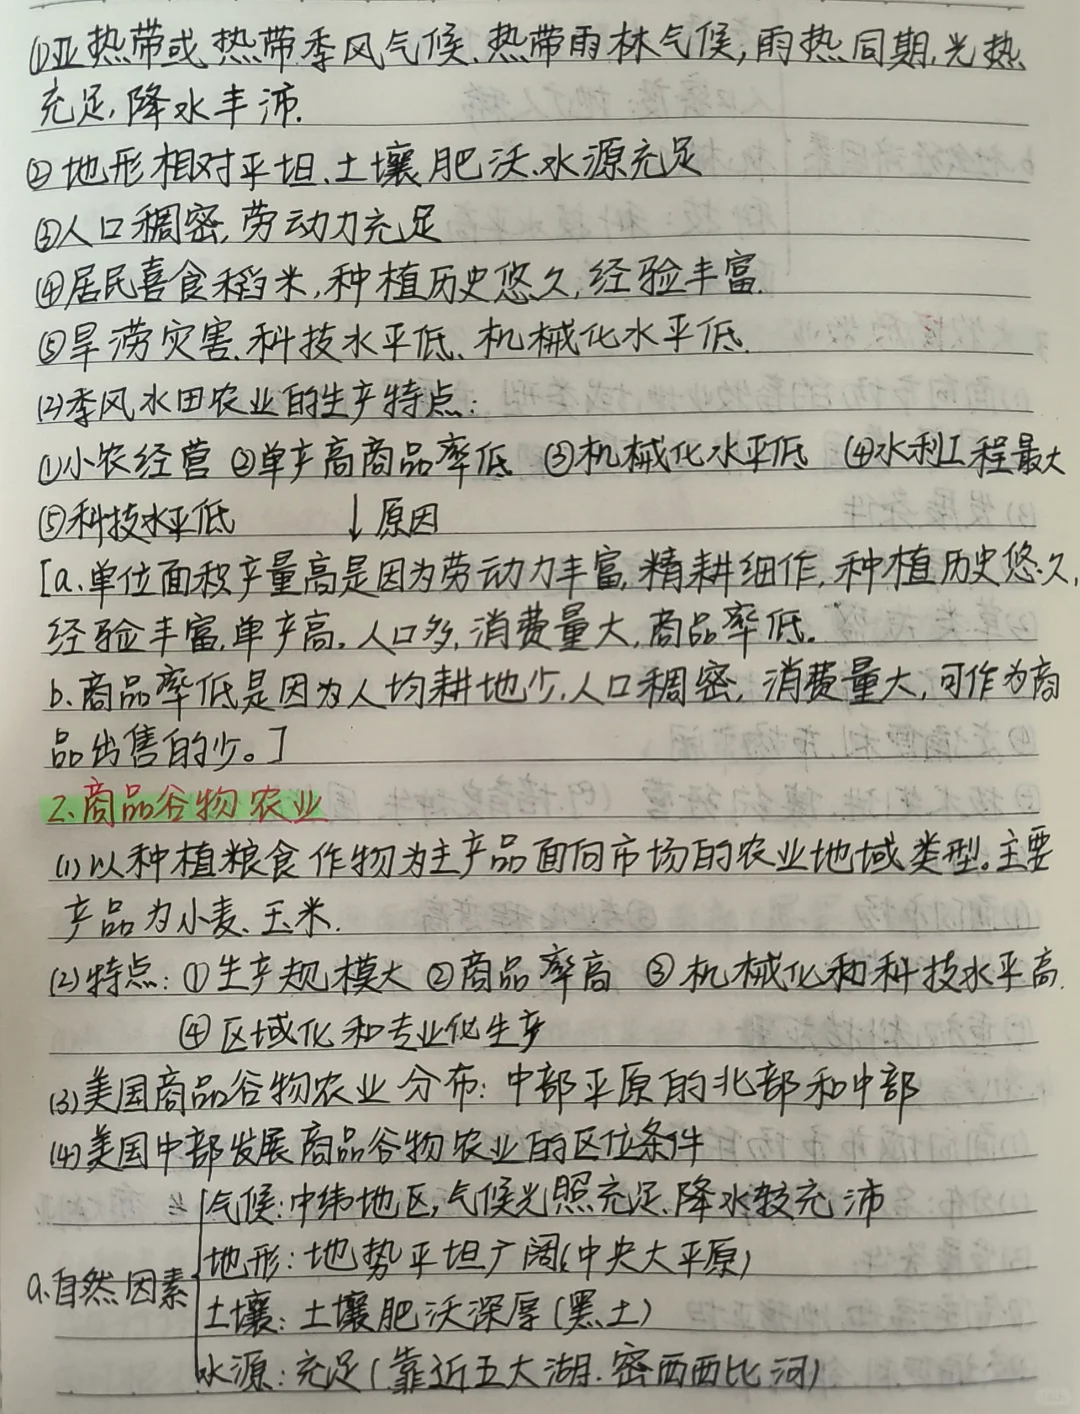 ①亚热带或热带季风气候、热带雨林气候,雨热同期,光热
充足,降水丰沛.
②地形相对平坦、土壤肥沃、水源充足
③人口稠密,劳动力充足
④居民喜食稻米,种植历史悠久,经验丰富.
⑤旱涝灾害、科技水平低、机械化水平低.
(2)季风水田农业的生产特点:
①小农经营 ②单产高商品率低 ③机械化水平低 ④水利工程量大
⑤科技水平低 ↓原因
[a.单位面积产量高是因为劳动力丰富,精耕细作,种植历史悠久,
经验丰富,单产高。人口多,消费量大,商品率低。
b.商品率低是因为人均耕地少,人口稠密,消费量大,可作为商
品出售的少。]
2.商品谷物农业
(1)以种植粮食作物为主产品面向市场的农业地域类型。主要
产品为小麦、玉米.
(2)特点:①生产规模大 ②商品率高 ③机械化和科技水平高.
④区域化和专业化生产
(3)美国商品谷物农业分布:中部平原的北部和中部
(4)美国中部发展商品谷物农业的区位条件
气候:中纬地区,气候光照充足,降水较充沛
地形:地势平坦广阔(中央大平原)
a.自然因素
土壤:土壤肥沃深厚(黑土)
水源:充足(靠近五大湖、密西西比河)